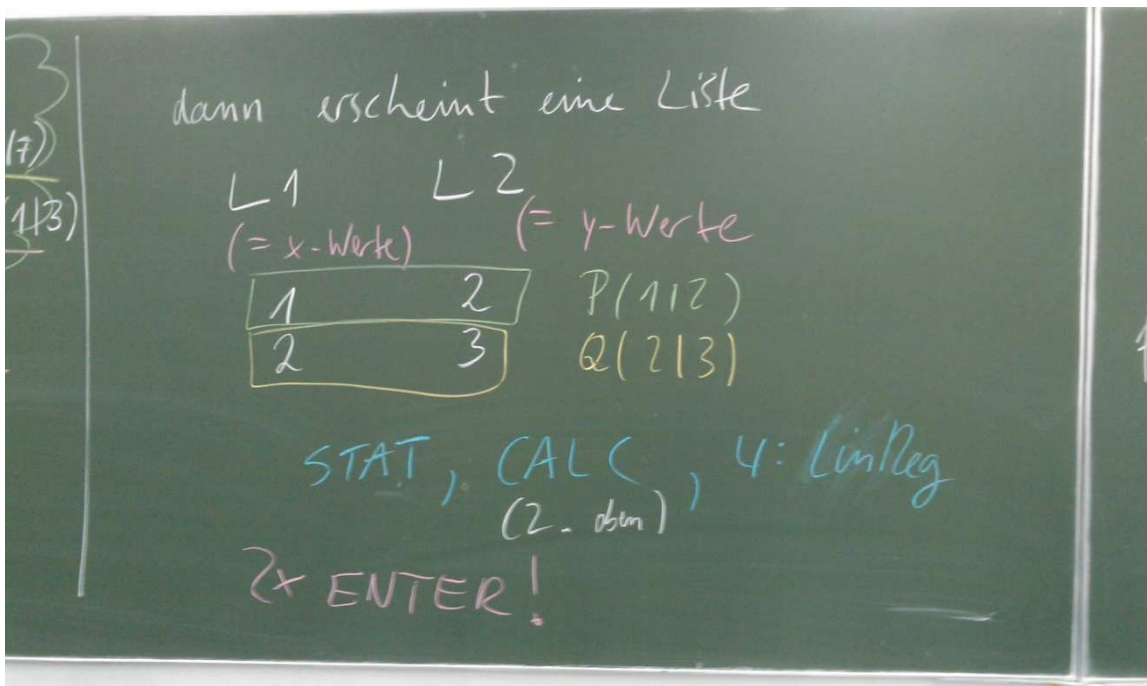 |7)
(1|3)
dann erscheint eine Liste
L1 L2
(= x-Werte) (= y-Werte
1 2 P(1|2)
2 3 Q(2|3)
STAT, CALC, 4: LinReg
(2. oben)
2x ENTER!